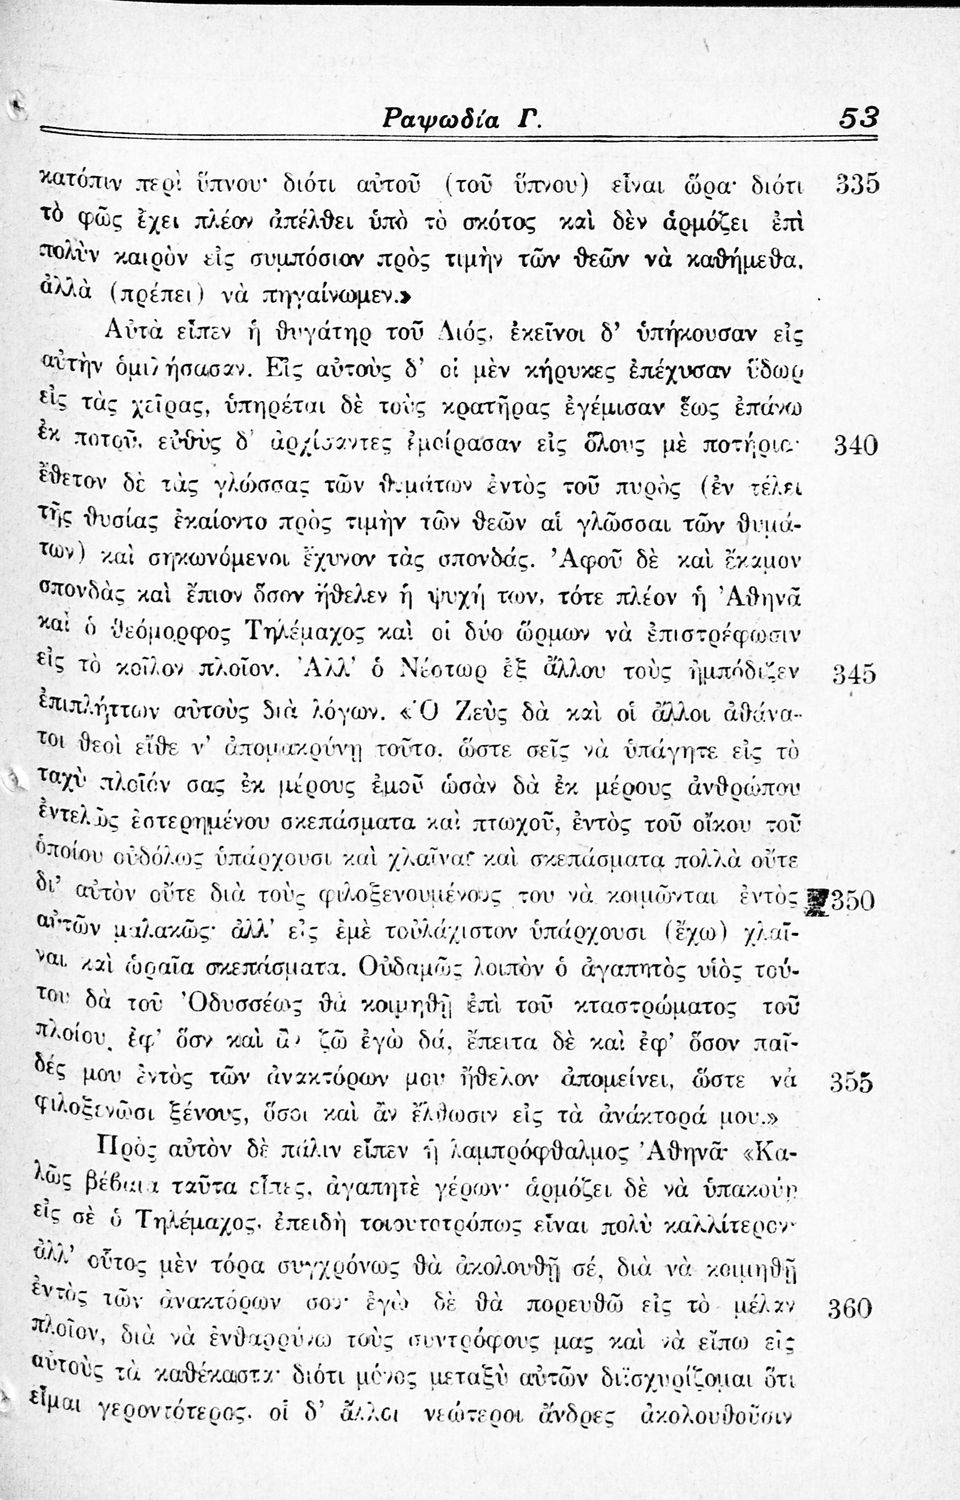 Ραψωδία Γ. 53
κατόπιν περὶ ὕπνου· διότι αὐτοῦ (τοῦ ὕπνου) εἶναι ὥρα· διότι 335
τὸ φῶς ἔχει πλέον ἀπέλθει ὑπὸ τὸ σκότος καὶ δὲν ἁρμόζει ἐπὶ
πολὺν καιρὸν εἰς συμπόσιον πρὸς τιμὴν τῶν θεῶν νὰ καθήμεθα,
ἀλλὰ (πρέπει) νὰ πηγαίνωμεν.»
Αὐτὰ εἶπεν ἡ θυγάτηρ τοῦ Διός, ἐκεῖνοι δ' ὑπήκουσαν εἰς
αὐτὴν ὁμιλήσασαν. Εἰς αὐτοὺς δ' οἱ μὲν κήρυκες ἐπέχυσαν ὕδωρ
εἰς τὰς χεῖρας, ὑπηρέται δὲ τοὺς κρατῆρας ἐγέμισαν ἕως ἐπάνω
ἐκ ποτοῦ, εὐθὺς δ' ἀρχίσαντες ἐμοίρασαν εἰς ὅλους μὲ ποτήρια· 340
ἔθετον δὲ τὰς γλώσσας τῶν θυμάτων ἐντὸς τοῦ πυρὸς (ἐν τέλει
τῆς θυσίας ἐκαίοντο πρὸς τιμὴν τῶν θεῶν αἱ γλῶσσαι τῶν θυμά-
των) καὶ σηκωνόμενοι ἔχυνον τὰς σπονδάς. Ἀφοῦ δὲ καὶ ἔκαμον
σπονδὰς καὶ ἔπιον ὅσον ἤθελεν ἡ ψυχή των, τότε πλέον ἡ Ἀθηνᾶ
καὶ ὁ θεόμορφος Τηλέμαχος καὶ οἱ δύο ὥρμων νὰ ἐπιστρέφωσιν
εἰς τὸ κοῖλον πλοῖον. Ἀλλ' ὁ Νέστωρ ἐξ ἄλλου τοὺς ἠμπόδιζεν 345
ἐπιπλήττων αὐτοὺς διὰ λόγων. «Ὁ Ζεὺς δὰ καὶ οἱ ἄλλοι ἀθάνα-
τοι θεοὶ εἴθε ν' ἀπομακρύνῃ τοῦτο, ὥστε σεῖς νὰ ὑπάγητε εἰς τὸ
ταχὺ πλοῖόν σας ἐκ μέρους ἐμοῦ ὡσὰν δὰ ἐκ μέρους ἀνθρώπου
ἐντελῶς ἐστερημένου σκεπάσματα καὶ πτωχοῦ, ἐντὸς τοῦ οἴκου τοῦ
ὁποίου οὐδόλως ὑπάρχουσι καὶ χλαῖναι καὶ σκεπάσματα πολλὰ οὔτε
δι' αὐτὸν οὔτε διὰ τοὺς φιλοξενουμένους του νὰ κοιμῶνται ἐντὸς 350
αὐτῶν μαλακῶς· ἀλλ' εἰς ἐμὲ τοὐλάχιστον ὑπάρχουσι (ἔχω) χλαῖ-
ναι καὶ ὡραῖα σκεπάσματα. Οὐδαμῶς λοιπὸν ὁ ἀγαπητὸς υἱὸς τού-
του δὰ τοῦ Ὀδυσσέως θὰ κοιμηθῇ ἐπὶ τοῦ κταστρώματος τοῦ
πλοίου, ἐφ' ὅσν καὶ ἂν ζῶ ἐγὼ δά, ἔπειτα δὲ καὶ ἐφ' ὅσον παῖ-
δές μου ἐντὸς τῶν ἀνακτόρων μου ἤθελον ἀπομείνει, ὥστε νὰ 355
φιλοξενῶσι ξένους, ὅσοι καὶ ἂν ἔλθωσιν εἰς τὰ ἀνάκτορά μου.»
Πρὸς αὐτὸν δὲ πάλιν εἶπεν ἡ λαμπρόφθαλμος Ἀθηνᾶ· «Κα-
λῶς βέβαια ταῦτα εἶπες, ἀγαπητὲ γέρων· ἁρμόζει δὲ νὰ ὑπακούῃ
εἰς σὲ ὁ Τηλέμαχος, ἐπειδὴ τοιουτοτρόπως εἶναι πολὺ καλλίτερον·
ἀλλ' οὗτος μὲν τόρα συγχρόνως θὰ ἀκολουθῇ σέ, διὰ νὰ κοιμηθῇ
ἐντὸς τῶν ἀνακτόρων σου· ἐγὼ δὲ θὰ πορευθῶ εἰς τὸ μέλαν 360
πλοῖον, διὰ νὰ ἐνθαρρύνω τοὺς συντρόφους μας καὶ νὰ εἴπω εἰς
αὐτοὺς τὰ καθέκαστα· διότι μόνος μεταξὺ αὐτῶν διϊσχυρίζομαι ὅτι
εἶμαι γεροντότερος, οἱ δ' ἄλλοι νεώτεροι ἄνδρες ἀκολουθοῦσιν